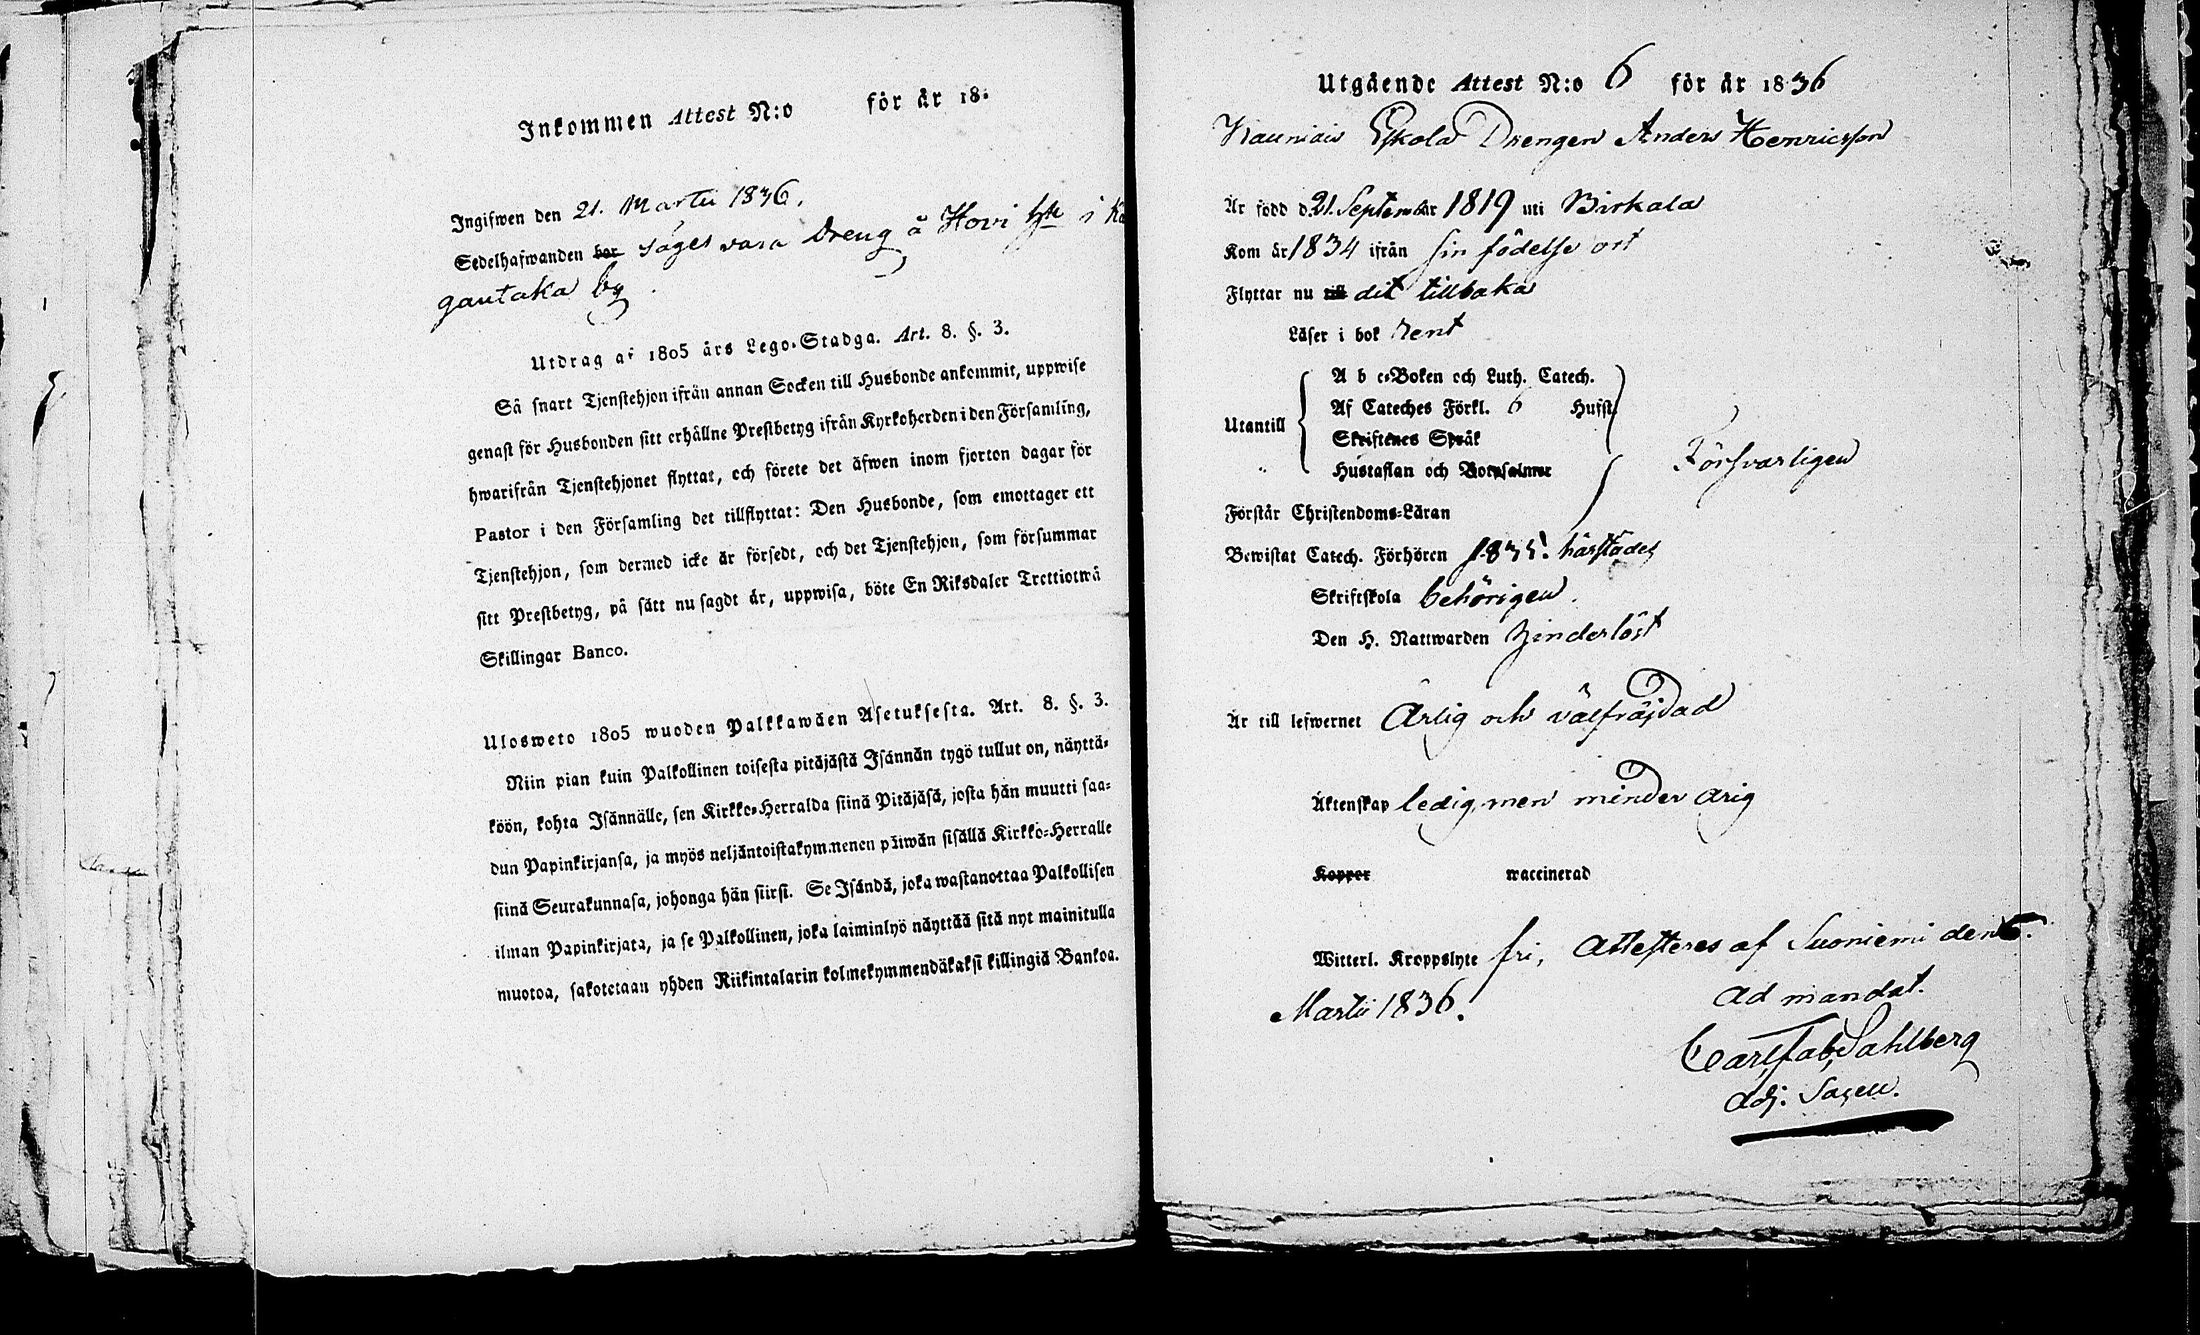 Inkommen Attest N:o för år 18
Ingifwen den 21. Martii 1836.
Sedelhafwanden bor säges vara Dreng å Hovi i Ka
gautaka by
Utdrag af 1805 års Lego-Stadga. Art. 8. §. 3.
Så snart Tjenstehjon ifrån annan Socken till Husbonde ankommit, uppwise
genast för Husbonden sitt erhållne Prestbetyg ifrån Kyrkoherden i den Församling,
hwarifrån Tjenstehjonet flyttat, och förete det äfwen inom fjorton dagar för
Pastor i den Församling det tillflyttat: Den Husbonde, som emottager ett
Tjenstehjon, som dermed icke är försedt, och det Tjenstehjon, som försummar
sitt Prestbetyg, på sätt nu sagdt är, uppwisa, böte En Riksdaler Trettiotwå
Skillingar Banco.
Ulosweto 1805 wuoden Palkkawäen Asetuksesta. Art. 8. §. 3.
Niin pian kuin Palkollinen toisesta pitäjästä Isännän tygö tullut on, näyttä-
köön, kohta Isännälle, sen Kirkko-Herralda siinä Pitäjäsä, josta hän muutti saa-
dun Papinkirjansa, ja myös neljäntoistakymmenen päiwän sisällä Kirkko-Herralle
siinä Seurakunnasa, johonga hän siirsi. Se Isändä, joka wastanottaa Palkollisen
ilman Papinkirjata, ja se Palkollinen, joka laiminlyö näyttää sitä nyt mainitulla
muotoa, sakotetaan yhden Riikintalarin kolmekymmendäkaksi killingiä Bankoa.
Utgående Attest N:o 6 för år 1836
Kauniais Eskola Drengen Anders Henricsson
Är född d. 21. September 1819 uti Birkala
Kom år 1834 ifrån sin födelse ort
Flyttar nu till dit tillbaka
Läser i bok rent
A b c-Boken och Luth. Catech.
Af Cateches Förkl. 6 Hufst.
Utantill
Skriftenes Språk
Hustaflan och Botpsalmer
Försvarligen
Förstår Christendoms-Läran
Bewistat Catech. Förhören 1835. härstädes
Skriftskola behörigen.
Den H. Nattwarden hinderlöst
Är till lefwernet Ärlig och välfräjdad
Äktenskap ledig, men minder årig
Kopper waccinerad
Witterl. Kroppslyte fri, Attesteras af Suoniemi den 6.
Martii 1836.
Ad mandat.
Carl Fab. Sahlberg
Adj. Sacell.